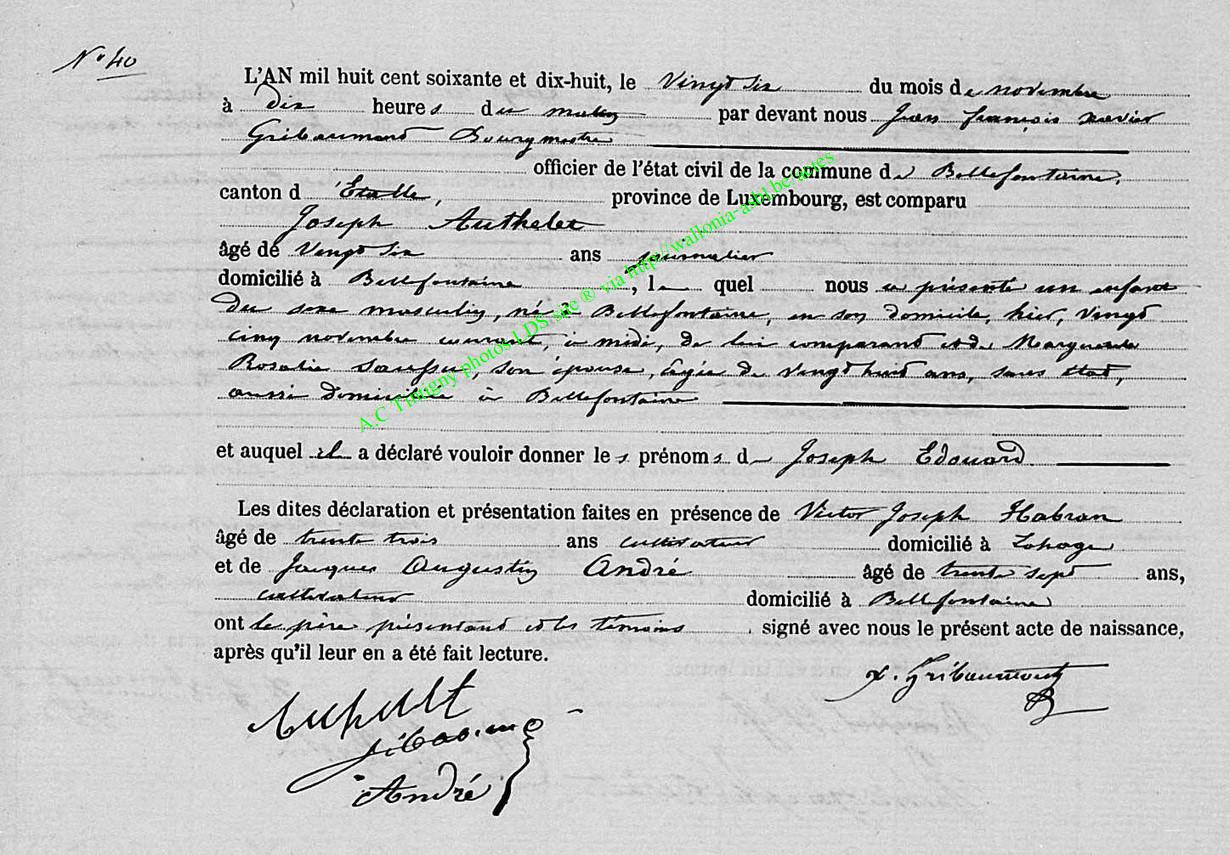 N° 40
L'AN mil huit cent soixante et dix-huit, le Vingt six du mois de novembre
à dix heures du matin par devant nous Jean françois xavier
Gribaumont Bourgmestre
officier de l'état civil de la commune de Bellefontaine,
canton d'Etalle, province de Luxembourg, est comparu
Joseph Authelet
âgé de Vingt six ans journalier
domicilié à Bellefontaine, le quel nous a présenté un enfant
du sexe masculin, né à Bellefontaine, en son domicile, hier, Vingt
cinq novembre courant, à midi, de lui comparant et de Marguerite
Rosalie son épouse, âgée de Vingt huit ans, sans état,
aussi domiciliée à Bellefontaine
et auquel il a déclaré vouloir donner les prénoms de Joseph Edouard
Les dites déclaration et présentation faites en présence de Victor Joseph Habran
âgé de trente trois ans cultivateur domicilié à Lahage
et de Jacques Augustin André âgé de trente sept ans,
cultivateur domicilié à Bellefontaine
ont le père présentant et les témoins signé avec nous le présent acte de naissance,
après qu'il leur en a été fait lecture.
x. Gribaumont
André
A.C Tintigny photos LDS site ® via http://wallonia-asbl.be/actes